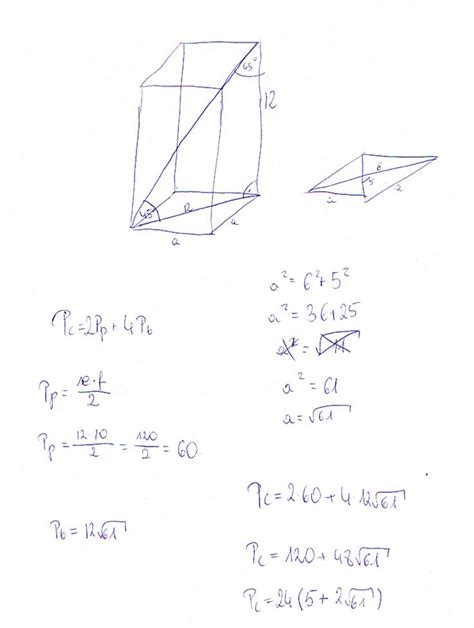 45°
12
45°
12
a
a
6
5
a
a
a² = 6² + 5²
a² = 36 + 25
a² = 61
a = √61
Pc = 2Pp + 4Pb
Pp = e·f / 2
Pp = 12·10 / 2 = 120 / 2 = 60
Pb = 12√61
Pc = 2·60 + 4·12√61
Pc = 120 + 48√61
Pc = 24(5 + 2√61)